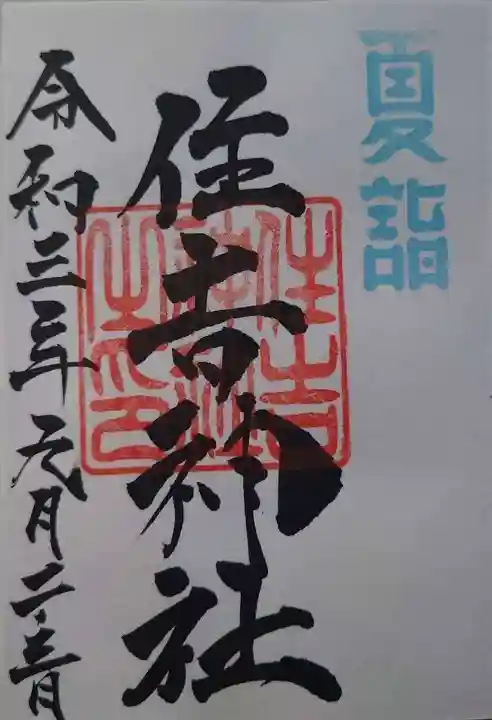 夏詣
住吉神社
住吉神社之印
令和三年 月二十三日